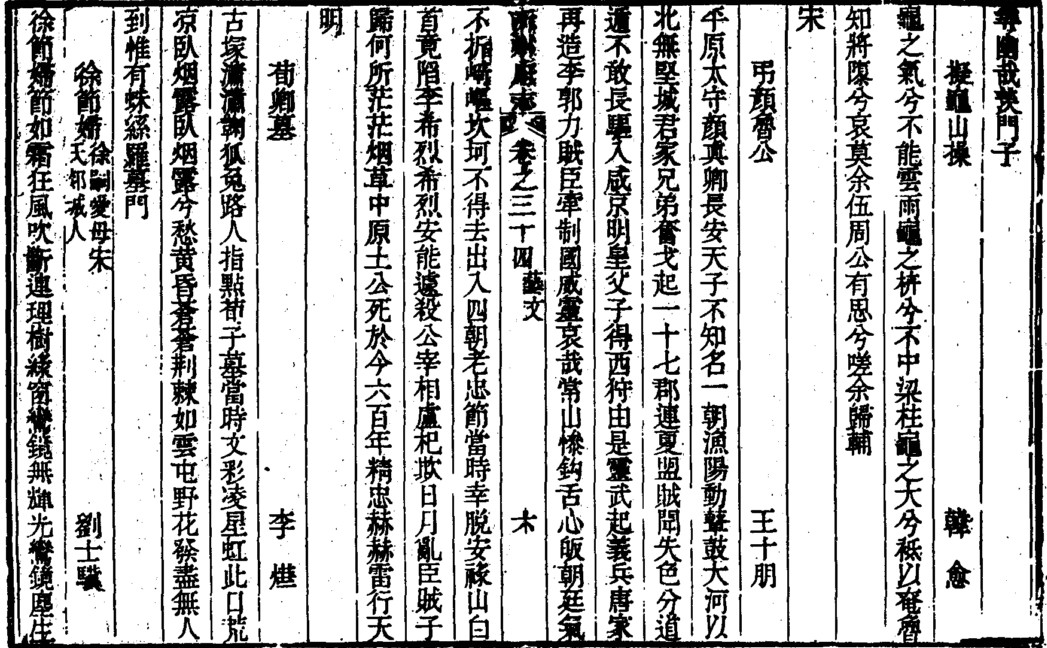 尋幽哉莢門子
擬龜山操　韓愈
龜之氣兮不能雲雨龜之枿兮不中梁柱龜之大兮秪以奄魯
知將隳兮哀莫余伍周公有思兮嗟余歸輔
宋
弔顏魯公　王十朋
平原太守顏眞卿長安天子不知名一朝漁陽動鼙鼓大河以
北無堅城君家兄弟奮戈起一十七郡連夏盟賊聞失色分道
遁不敢長驅入咸京明皇父子得西狩由是靈武起義兵唐家
再造李郭力賊臣牽制國威靈哀哉常山慘鈎舌心皈朝廷氣
卷之三十四　藝文　
不折崎嶇坎坷不得去出入四朝老忠節當時幸脱安祿山白
首竟陷李希烈希烈安能遽殺公宰相盧杞欺日月亂臣賊子
歸何所茫茫烟草中原土公死於今六百年精忠赫赫雷行天
明
荀卿墓　李燁
古塚瀟瀟鞠狐兔路人指點荀子墓當時文彩凌星虹此日荒
凉臥烟露臥烟露兮愁黄昏蒼蒼荆棘如雲屯野花發盡無人
到惟有蛛絲羅墓門
徐節婦　徐嗣愛母宋氏郯城人　劉士驥
徐節婦節如霜狂風吹斷連理樹綠窗鸞鏡無輝光鸞鏡塵生